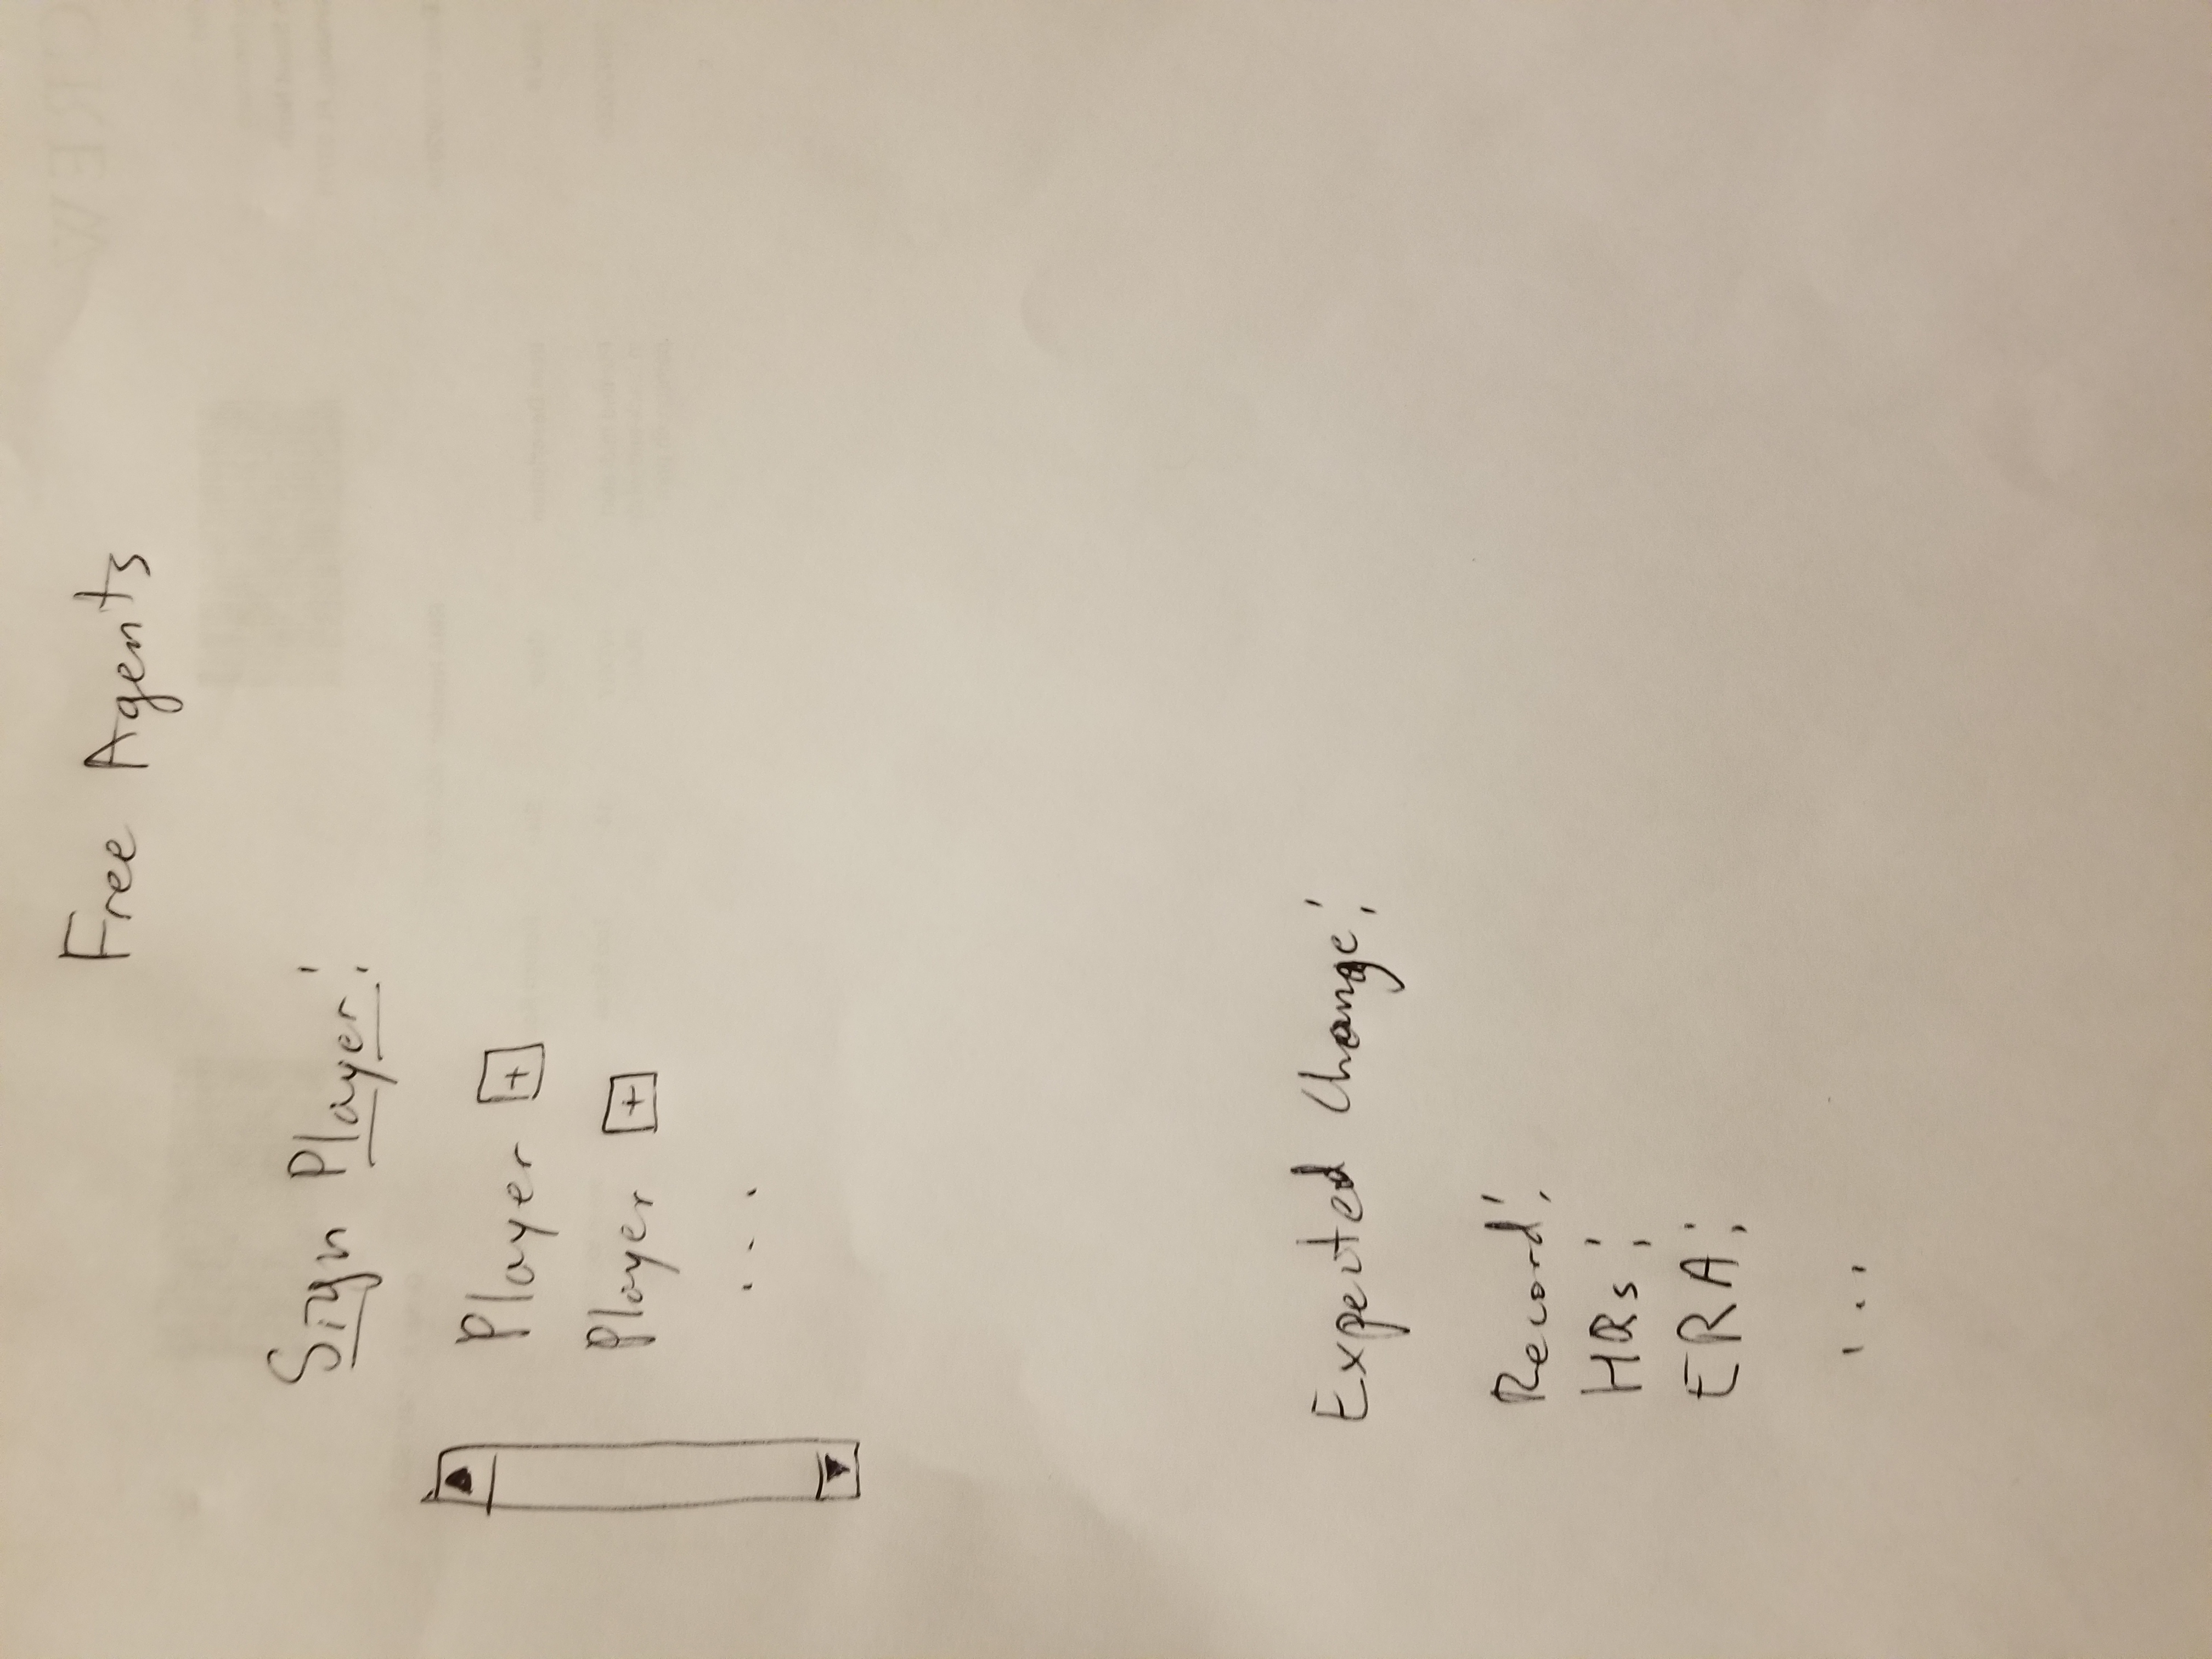 Free Agents
Sign Player:
Player +
Player +
...
Expected Change:
Record:
HRs:
ERA:
...